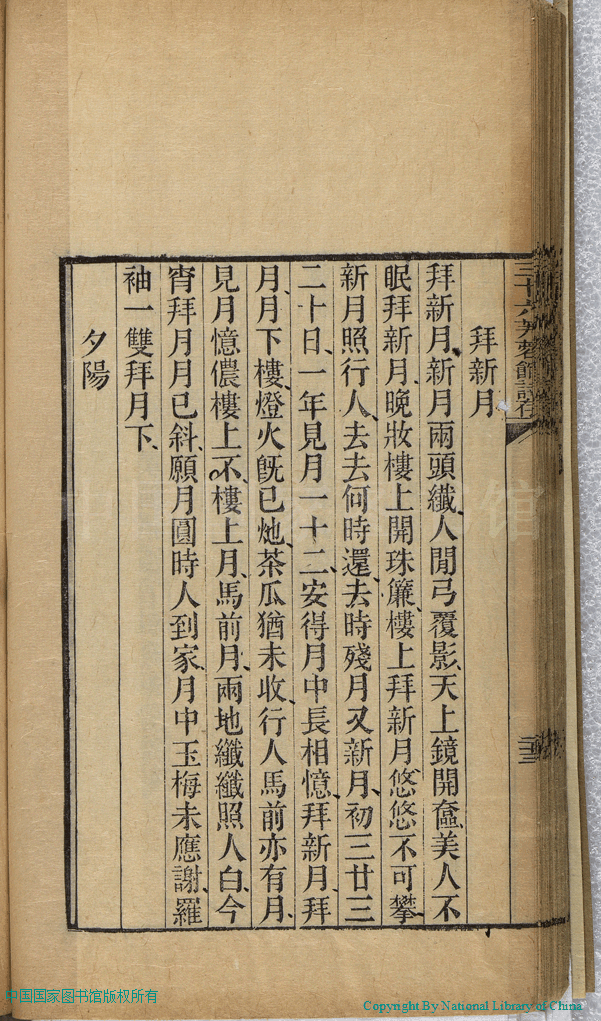 三十六芙蓉館詩存
拜新月
拜新月、新月兩頭纖、人閒弓覆影、天上鏡開奩、美人不
眠拜新月、晚妝樓上開珠簾、樓上拜新月悠悠不可攀、
新月照行人、去去何時還、去時殘月又新月、初三廿三
二十日、一年見月一十二、安得月中長相憶、拜新月、拜
月、月下樓、燈火旣已灺、茶瓜猶未收、行人馬前亦有月、
見月憶儂樓上不、樓上月、馬前月、兩地纖纖照人白、今
宵拜月月已斜、願月圓時人到家、月中玉梅未應謝、羅
袖一雙拜月下、
夕陽
中国国家图书馆版权所有
Copyright By National Library of China